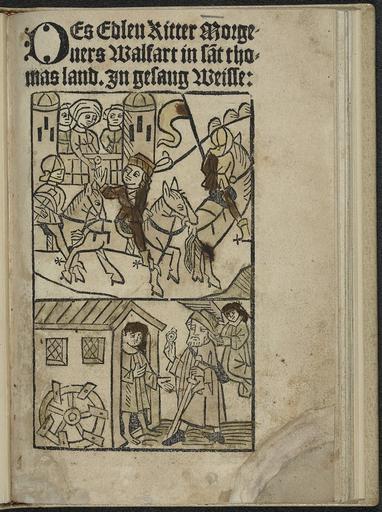 DEs Edlen Ritter Morge-
ners Walfart in sāt tho-
mas land. In gesang Weisse: